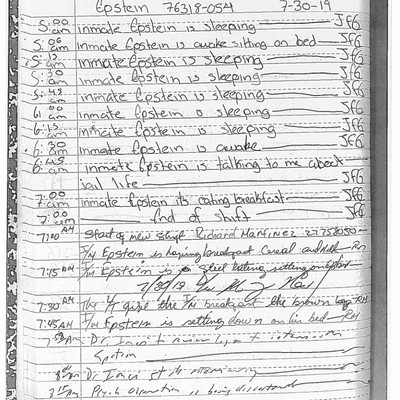 Epstein 76318-054 7-30-19
5:00 am inmate Epstein is sleeping JFG
5:06 am inmate Epstein is awake sitting on bed JFG
5:15 am inmate Epstein is sleeping JFG
5:30 am inmate Epstein is sleeping JFG
5:45 am inmate Epstein is sleeping JFG
6:00 am inmate Epstein is sleeping JFG
6:15 am inmate Epstein is sleeping JFG
6:30 am inmate Epstein is awake JFG
6:45 am inmate Epstein is talking to me about
jail life JFG
7:00 am inmate Epstein is eating breakfast JFG
7:00 am End of shift JFG
7:00 AM Start of new shift Richard Martinez
I/M Epstein is having breakfast Cereal and milk RM
7:15 AM I/M Epstein is still eating setting on bed
7/30/19
7:30 AM The I/M breakfast the brown bag RM
7:45 AM I/M Epstein is setting down on his bed RM
Dr. to
Dr.
Psych observation is being discontinued